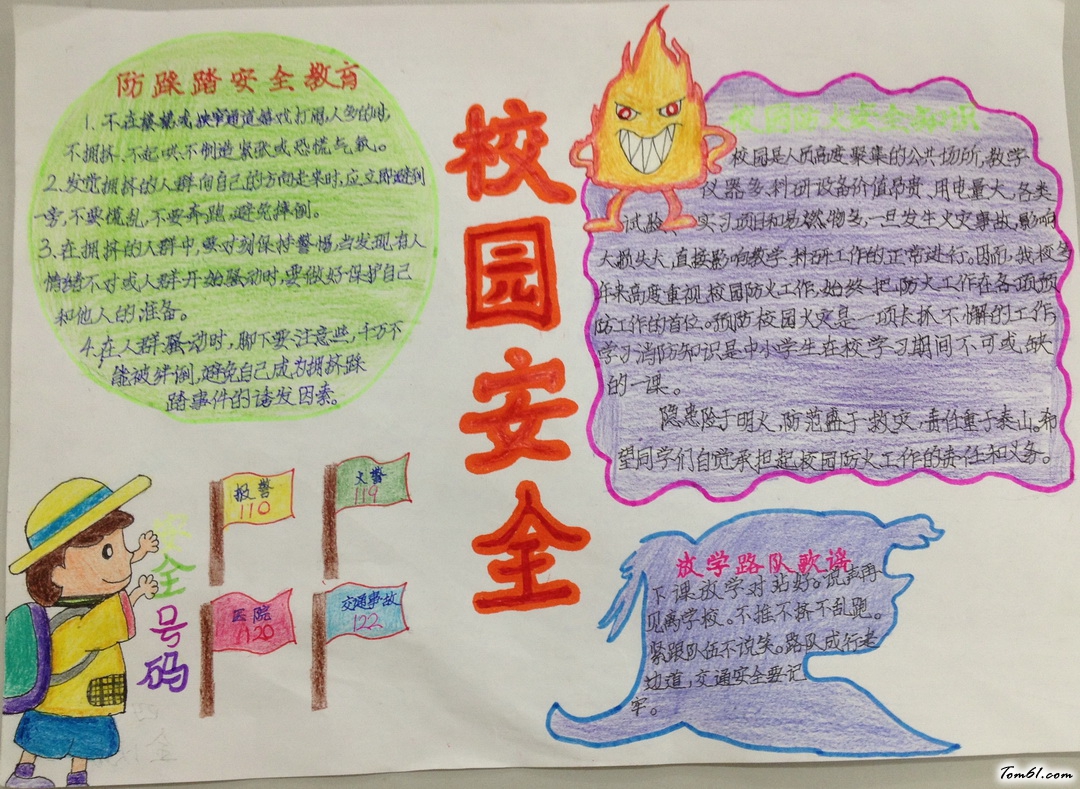 防踩踏安全教育
1. 不在楼梯或狭窄通道嬉戏打闹,人多的时,
不拥挤、不起哄、不制造紧张或恐慌气氛。
2. 发觉拥挤的人群向自己的方向走来时,应立即避到
一旁,不要慌乱,不要奔跑,避免摔倒。
3. 在拥挤的人群中,要时刻保持警惕,当发现有人
情绪不对或人群开始骚动时,要做好保护自己
和他人的准备。
4. 在人群骚动时,脚下要注意些,千万不
能被绊倒,避免自己成为拥挤踩
踏事件的诱发因素。
校园安全
校园防火安全知识
校园是人员高度聚集的公共场所,教学
仪器多,科研设备价值昂贵,用电量大,各类
试验、实习项目和易燃物多,一旦发生火灾事故,影响
大损失大,直接影响教学、科研工作的正常进行。因而,我校多
年来高度重视校园防火工作,始终把防火工作在各项预
防工作的首位。预防校园火灾是一项长抓不懈的工作
学习消防知识是中小学生在校学习期间不可或缺
的一课。
隐患险于明火,防范盛于救灾,责任重于泰山。希
望同学们自觉承担起校园防火工作的责任和义务。
安全号码
报警
110
火警
119
医院
1120
交通事故
122
放学路队歌谣
下课放学对站好。说声再
见离学校。不推不挤不乱跑。
紧跟队伍不说笑。路队成行走
边道,交通安全要记
牢。
Tom61.com